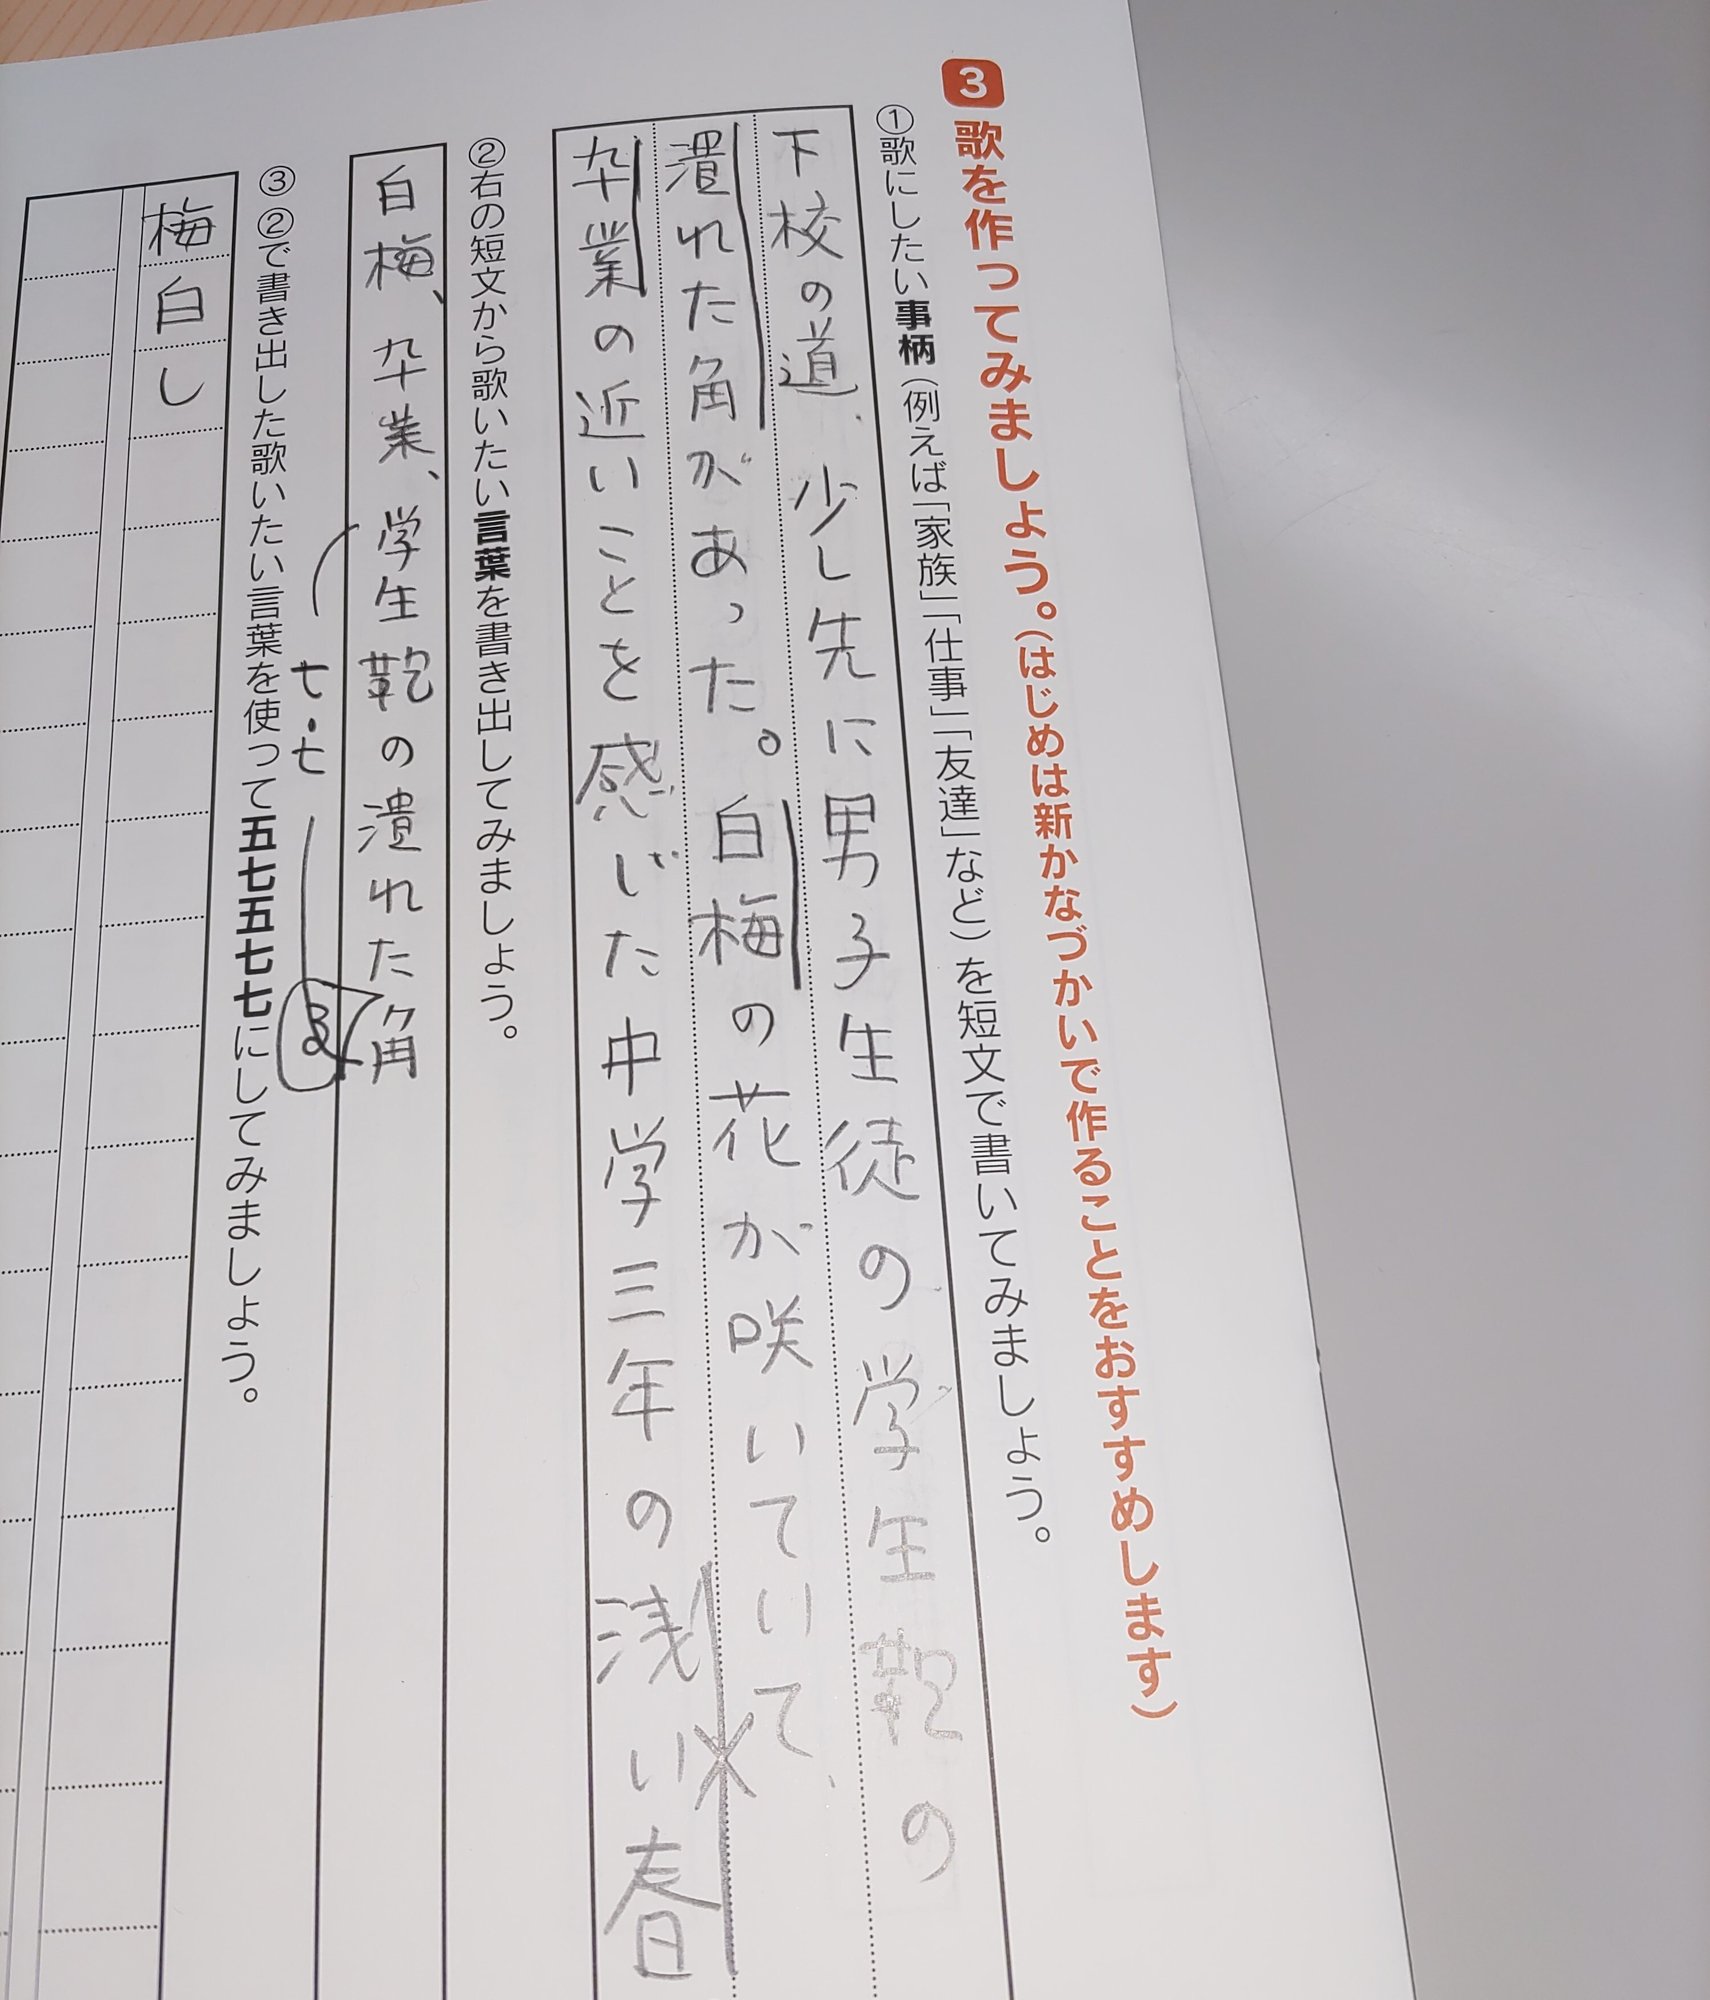 3 歌を作ってみましょう。(はじめは新かなづかいで作ることをおすすめします)
①歌にしたい事柄(例えば「家族」「仕事」「友達」など)を短文で書いてみましょう。
下校の道、少し先に男子生徒の学生鞄の
潰れた角があった。白梅の花が咲いていて、
卒業の近いことを感じた中学三年の浅い春
②右の短文から歌いたい言葉を書き出してみましょう。
白梅、卒業、学生鞄の潰れた角
七・七
③②で書き出した歌いたい言葉を使って五七五七七にしてみましょう。
梅白し